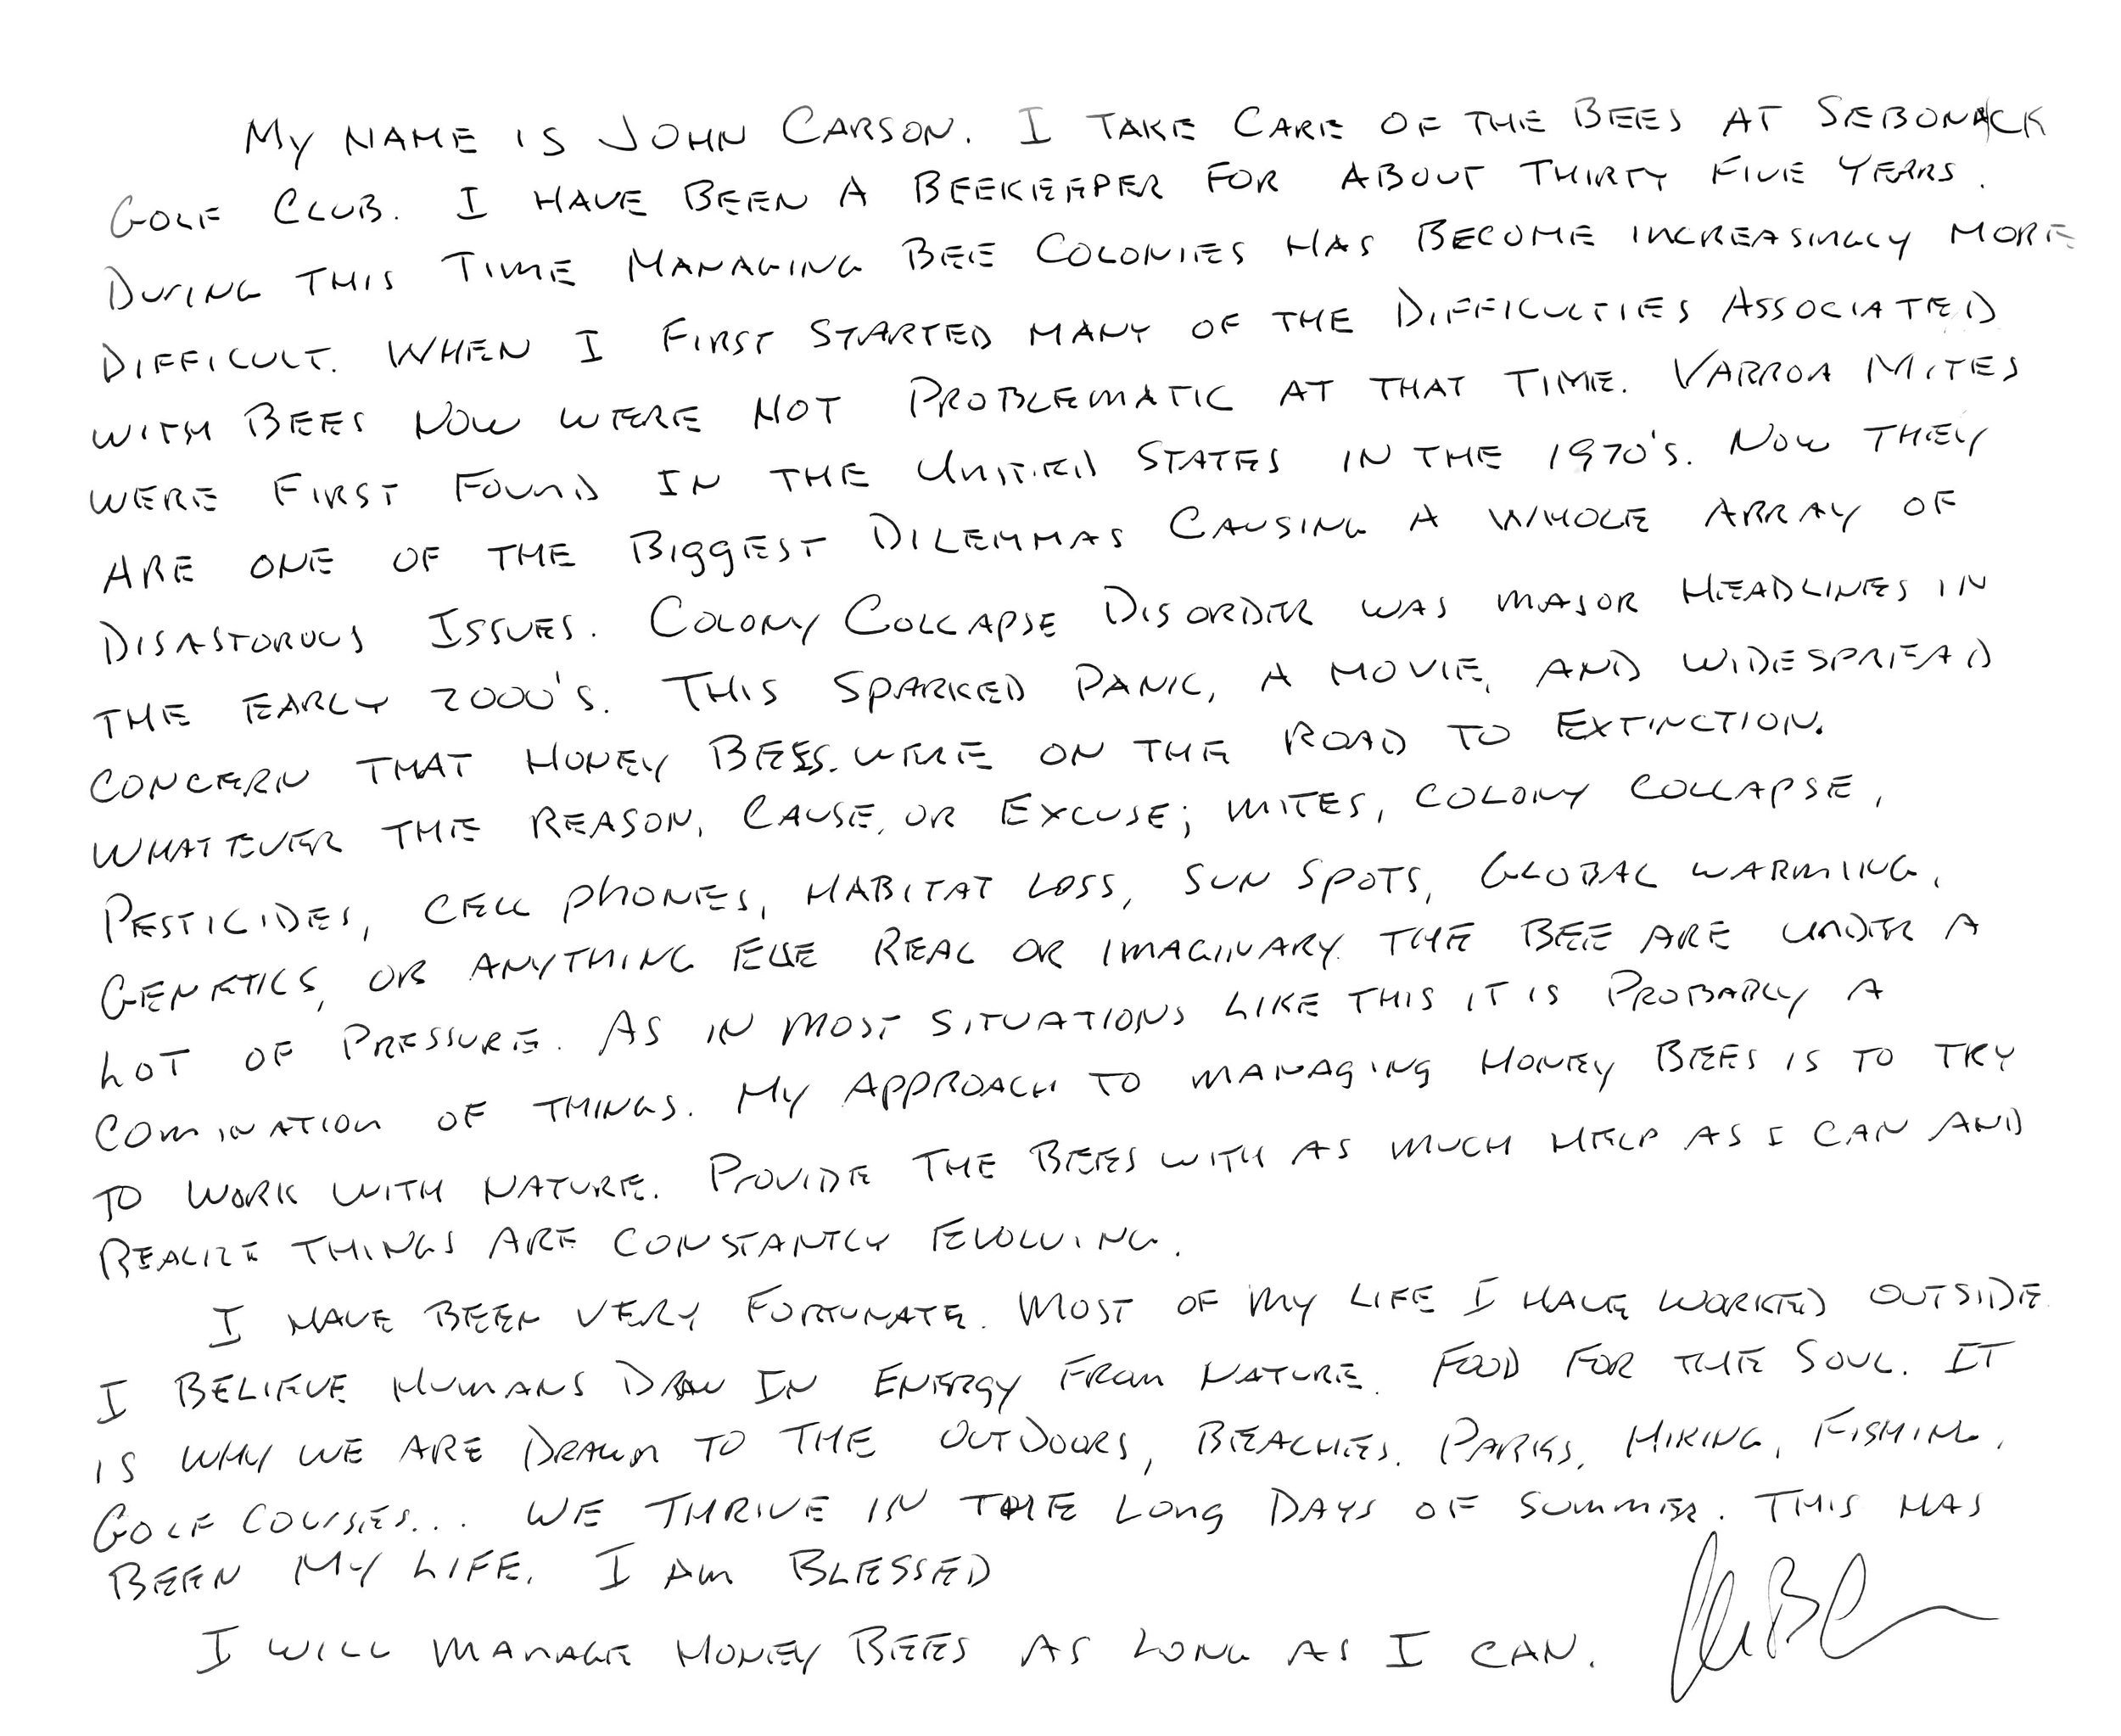 My NAME IS JOHN CARSON. I TAKE CARE OF THE BEES AT SEBONACK
GOLF CLUB. I HAVE BEEN A BEEKEEPER FOR ABOUT THIRTY FIVE YEARS.
DURING THIS TIME MANAGING BEE COLONIES HAS BECOME INCREASINGLY MORE
DIFFICULT. WHEN I FIRST STARTED MANY OF THE DIFFICULTIES ASSOCIATED
WITH BEES NOW WERE NOT PROBLEMATIC AT THAT TIME. VARROA MITES
WERE FIRST FOUND IN THE UNITED STATES IN THE 1970'S. NOW THEY
ARE ONE OF THE BIGGEST DILEMMAS CAUSING A WHOLE ARRAY OF
DISASTOROUS ISSUES. COLONY COLLAPSE DISORDER WAS MAJOR HEADLINES IN
THE EARLY 2000'S. THIS SPARKED PANIC, A MOVIE, AND WIDESPREAD
CONCERN THAT HONEY BEES WERE ON THE ROAD TO EXTINCTION.
WHATEVER THE REASON, CAUSE, OR EXCUSE; MITES, COLONY COLLAPSE,
PESTICIDES, CELL PHONES, HABITAT LOSS, SUN SPOTS, GLOBAL WARMING,
GENETICS, OR ANYTHING ELSE REAL OR IMAGINARY. THE BEE ARE UNDER A
LOT OF PRESSURE. AS IN MOST SITUATIONS LIKE THIS IT IS PROBABLY A
COMINATION OF THINGS. MY APPROACH TO MANAGING HONEY BEES IS TO TRY
TO WORK WITH NATURE. PROVIDE THE BEES WITH AS MUCH HELP AS I CAN AND
REALIZE THINGS ARE CONSTANTLY EVOLVING.
I HAVE BEEN VERY FORTUNATE. MOST OF MY LIFE I HAVE WORKED OUTSIDE.
I BELIEVE HUMANS DRAW IN ENERGY FROM NATURE. FOOD FOR THE SOUL. IT
IS WHY WE ARE DRAWN TO THE OUTDOORS, BEACHES, PARKS, HIKING, FISHING,
GOLF COURSES... WE THRIVE IN THE LONG DAYS OF SUMMER. THIS HAS
BEEN MY LIFE. I AM BLESSED
I WILL MANAGE HONEY BEES AS LONG AS I CAN.